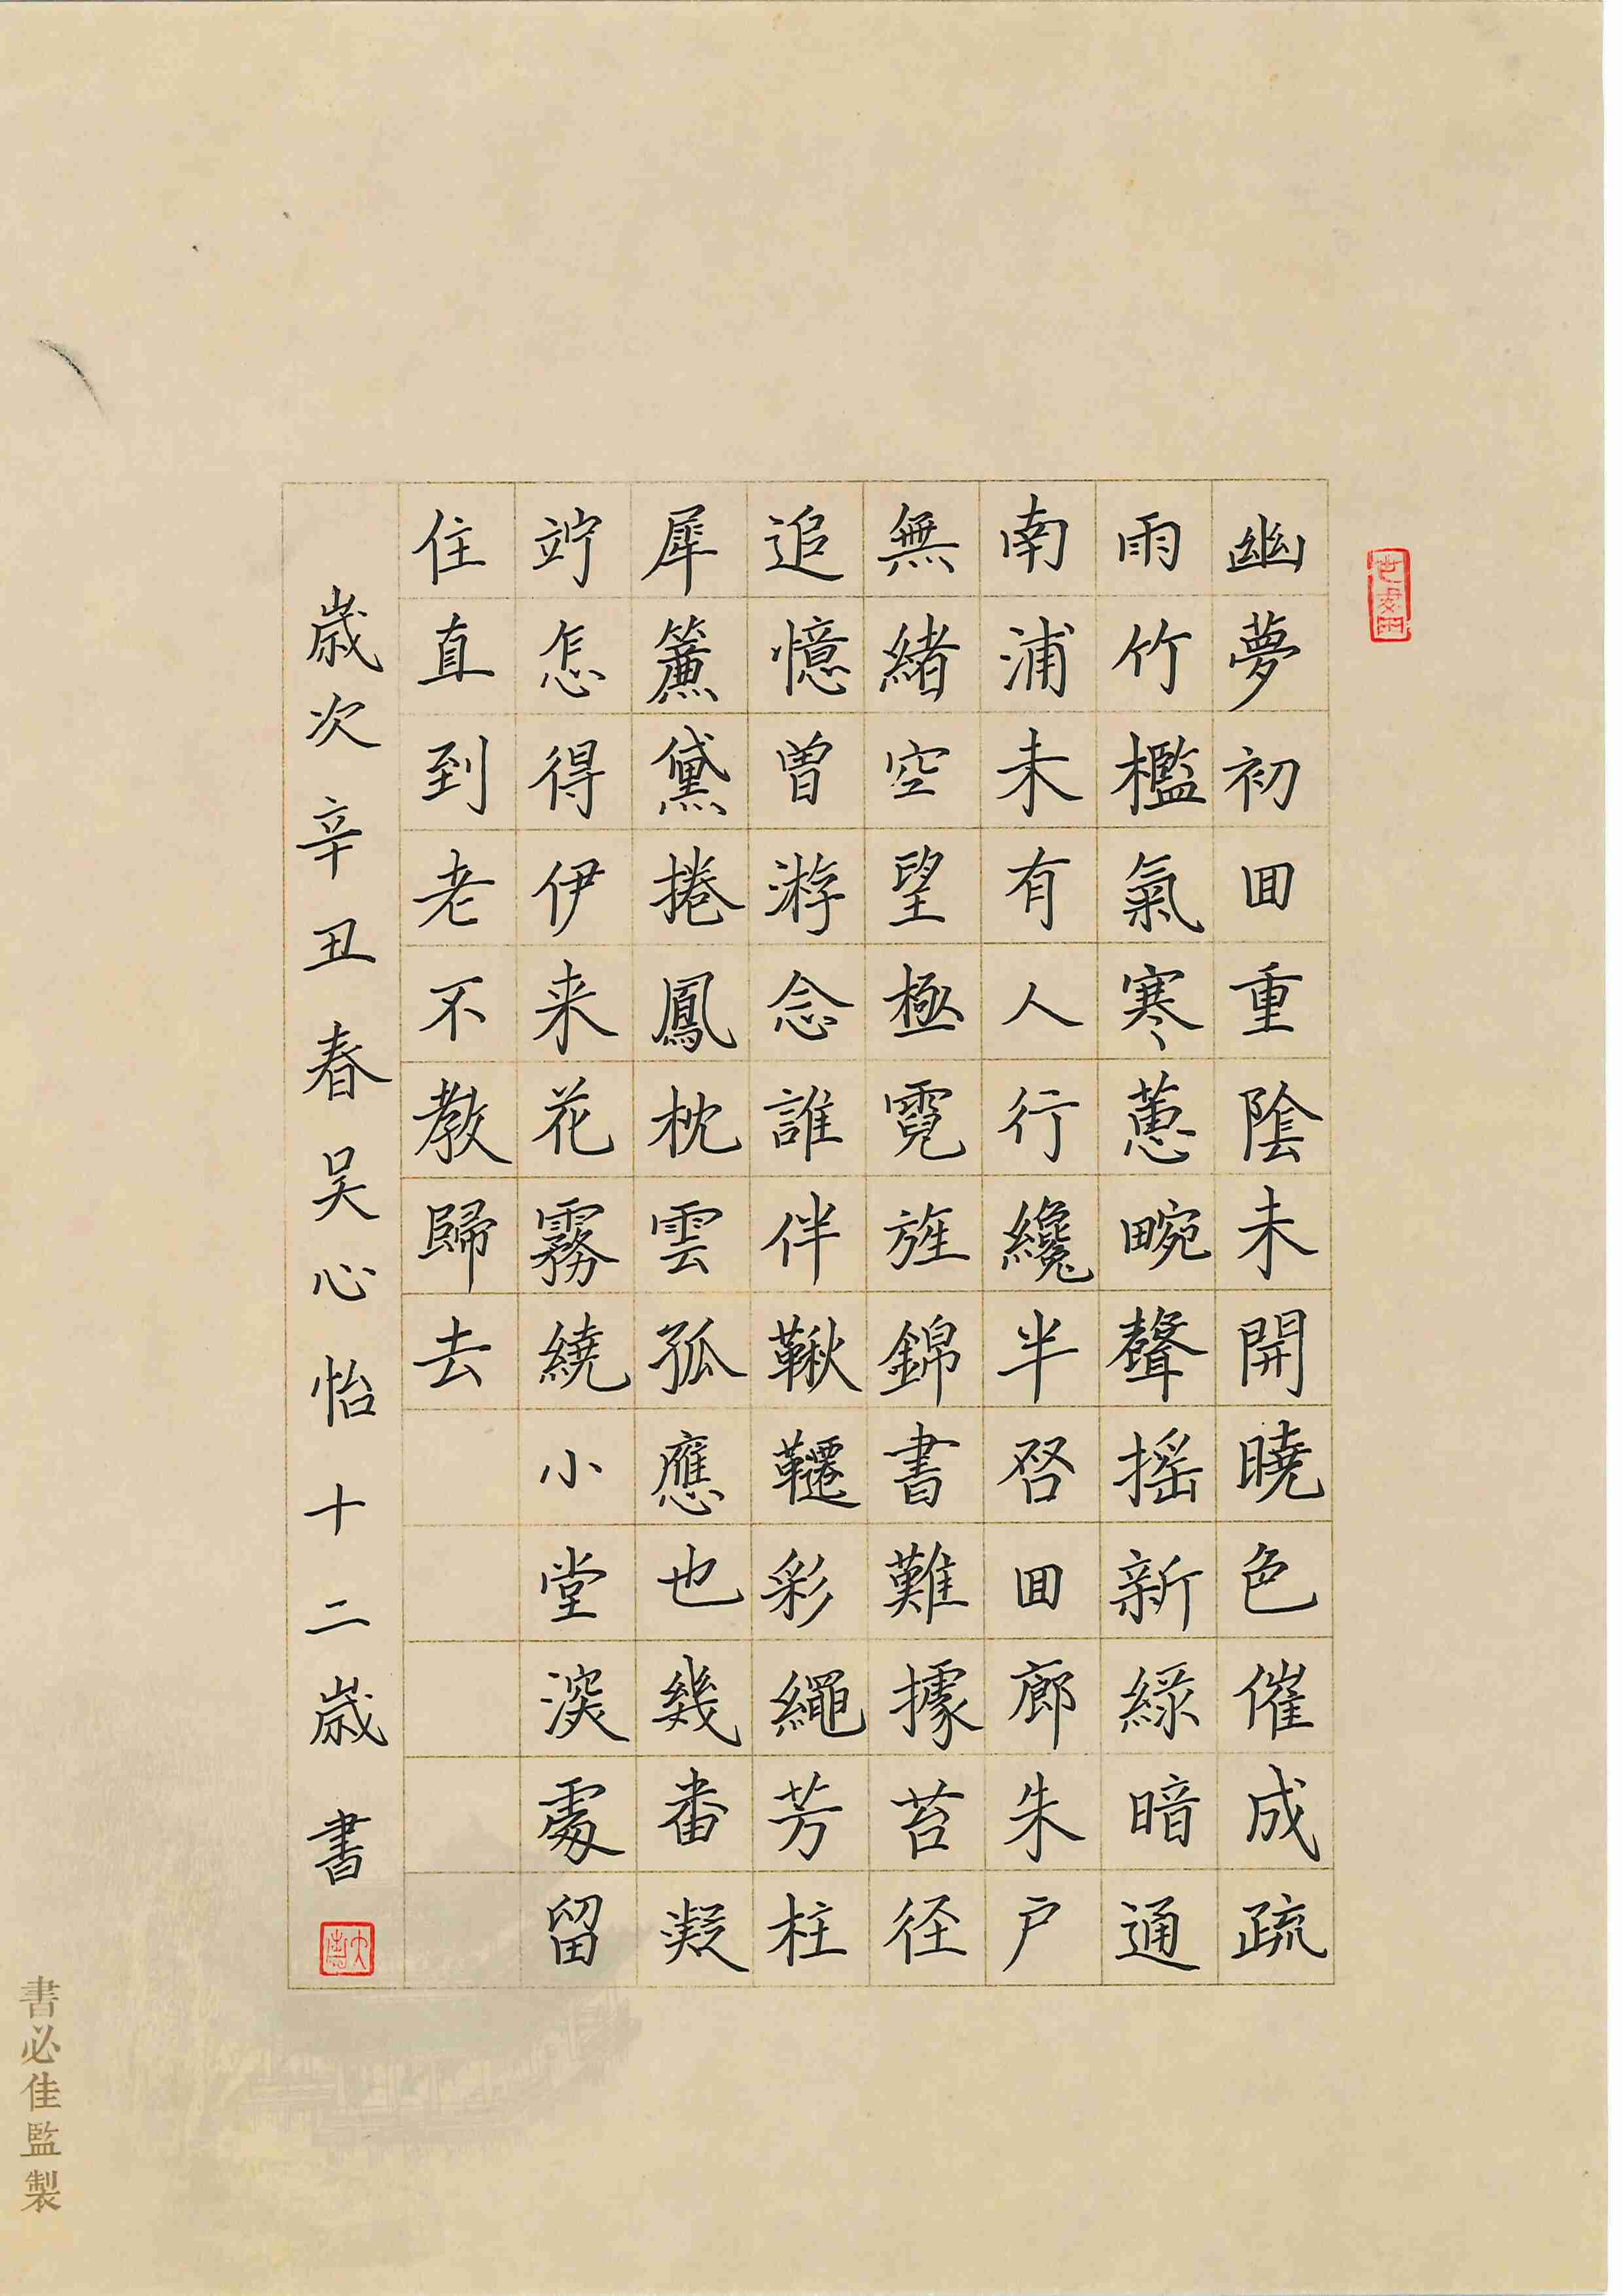 幽夢初回重陰未開曉色催成疏
雨竹檻氣寒蕙畹聲摇新綠暗通
南浦未有人行纔半启回廊朱戶
無緒空望極霓旌錦書難據苔径
追憶曾游念誰伴鞦韆彩繩芳柱
犀簾黛捲鳳枕雲孤應也幾番凝
竚怎得伊来花霧繞小堂深處留
住直到老不教歸去
歲次辛丑春吴心怡十二歲書
書必佳監製